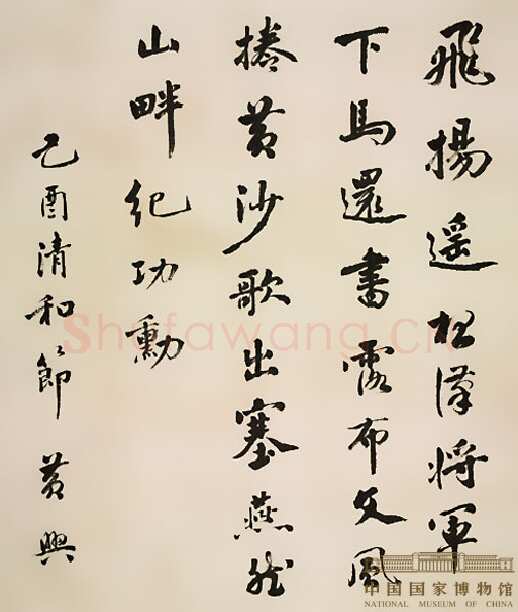 飛揚遥松漢將軍
下馬還書露布文風
捲黃沙歌出塞燕然
山畔紀功勳
己酉清和節 黃興
Shufawang.cn
中国国家博物馆
NATIONAL MUSEUM OF CHINA